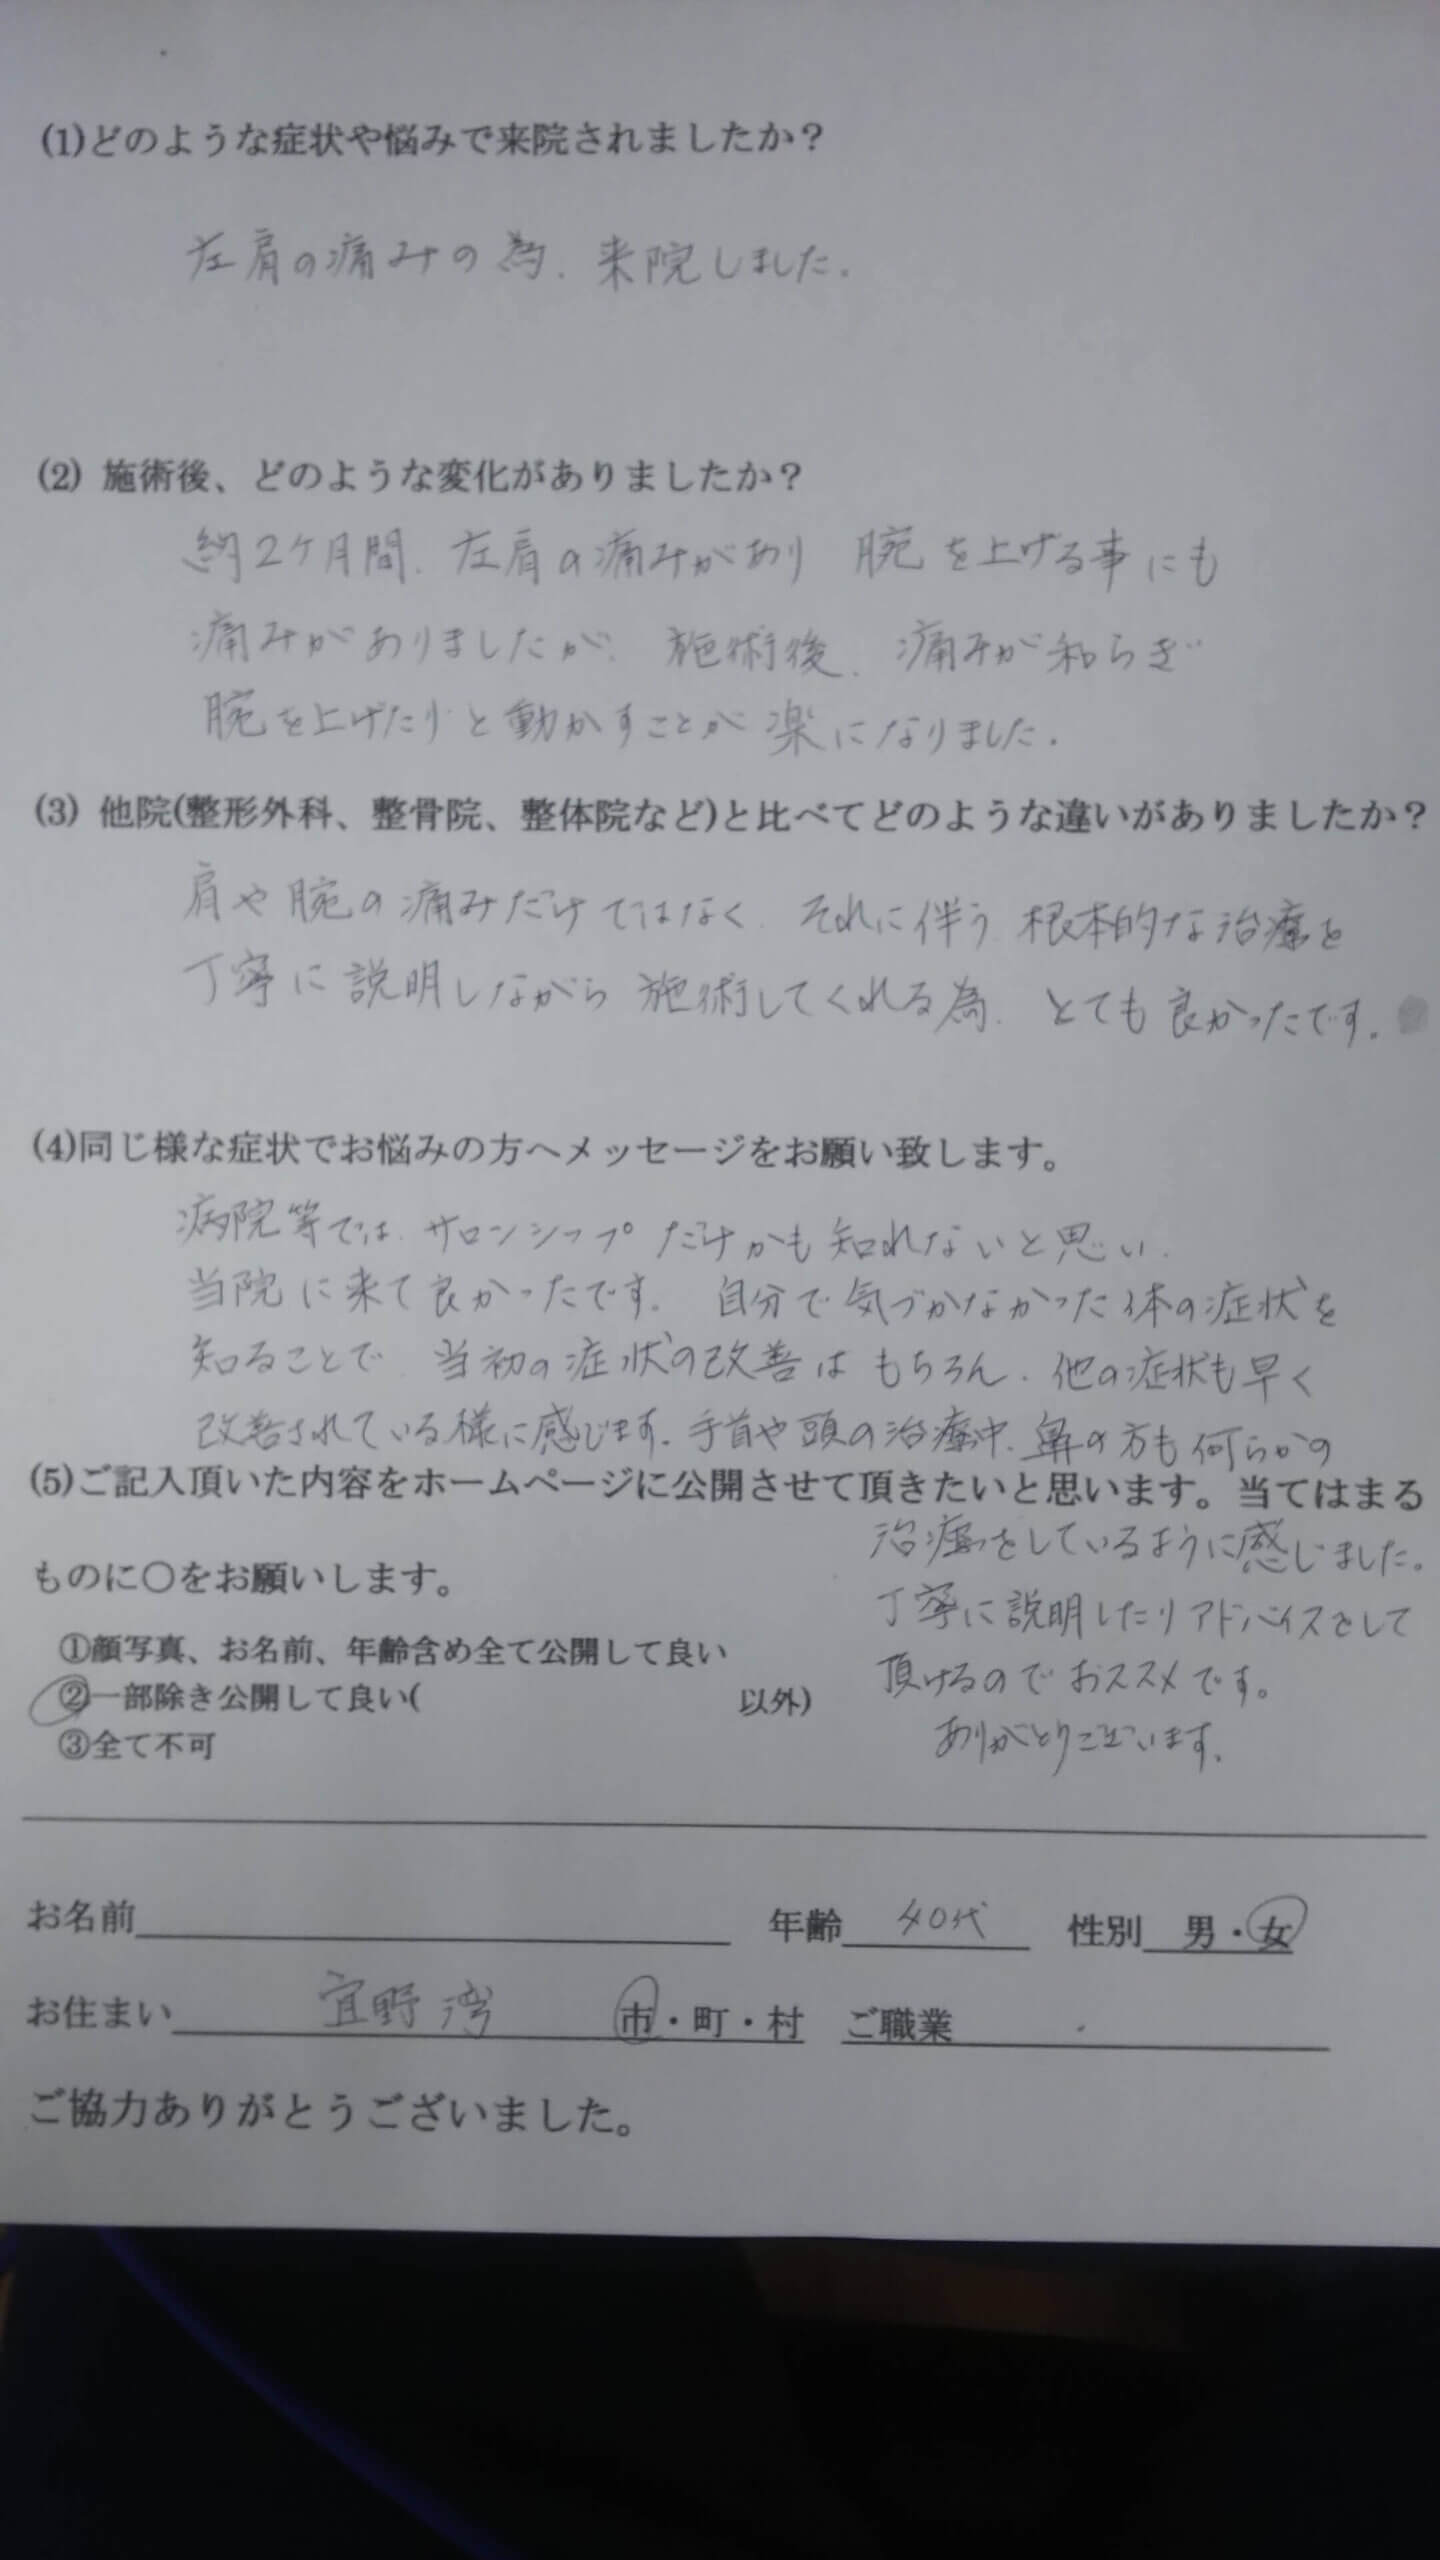 (1)どのような症状や悩みで来院されましたか？
左肩の痛みの為、来院しました。
(2) 施術後、どのような変化がありましたか？
約2ケ月間、左肩の痛みがあり 腕を上げる事にも
痛みがありましたが、施術後、痛みが和らぎ
腕を上げたりと動かすことが楽になりました。
(3) 他院(整形外科、整骨院、整体院など)と比べてどのような違いがありましたか？
肩や腕の痛みだけではなく、それに伴う根本的な治療を
丁寧に説明しながら施術してくれる為、とても良かったです。
(4)同じ様な症状でお悩みの方へメッセージをお願い致します。
病院等では、サロンシップだけかも知れないと思い、
当院に来て良かったです。自分で気づかなかった体の症状を
知ることで、当初の症状の改善はもちろん、他の症状も早く
改善されている様に感じます。手首や頭の治療中、鼻の方も何らかの
(5)ご記入頂いた内容をホームページに公開させて頂きたいと思います。当てはまる
治療をしているように感じました。
ものに○をお願いします。
丁寧に説明したりアドバイスをして
①顔写真、お名前、年齢含め全て公開して良い
頂けるのでおススメです。
②一部除き公開して良い( 以外)
ありがとうございます。
③全て不可
お名前 年齢 40代 性別 男・女
お住まい 宜野湾 市・町・村 ご職業
ご協力ありがとうございました。